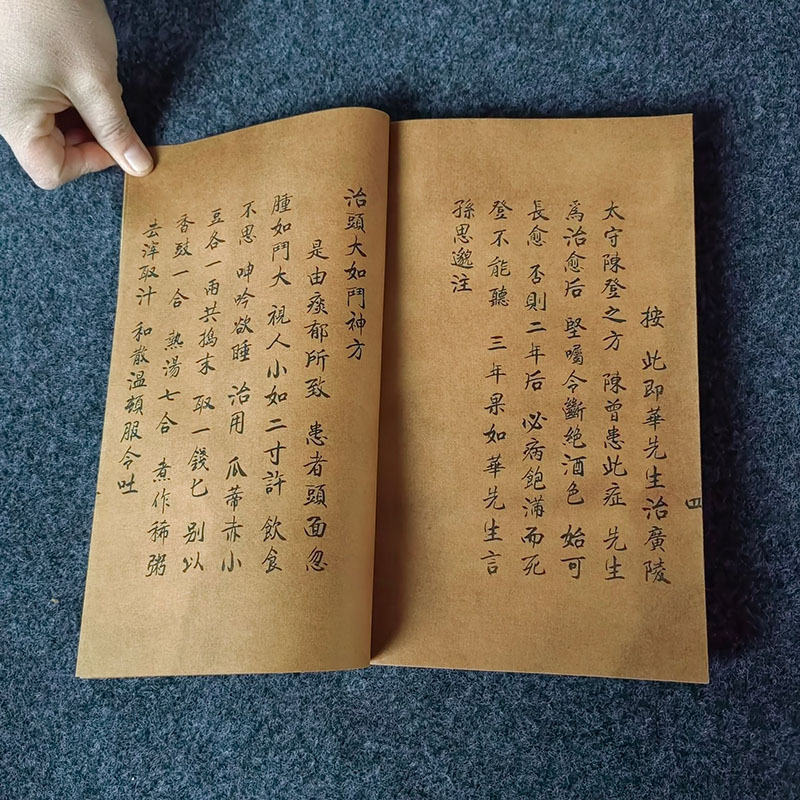 按 此即華先生治廣陵
太守陳登之方 陳曾患此症 先生
爲治愈后 堅囑令斷絕酒色 始可
長愈 否則二年后 必病飽滿而死
登不能聽 三年果如華先生言
孫思邈注
四
治頭大如鬥神方
是由痰郁所致 患者頭面忽
腫如鬥大 視人小如二寸許 飲食
不思 呻吟欲睡 治用 瓜蒂赤小
豆各一兩共搗末 取一錢匕 別以
香豉一合 熱湯七合 煮作稀粥
去滓取汁 和散温頓服令吐